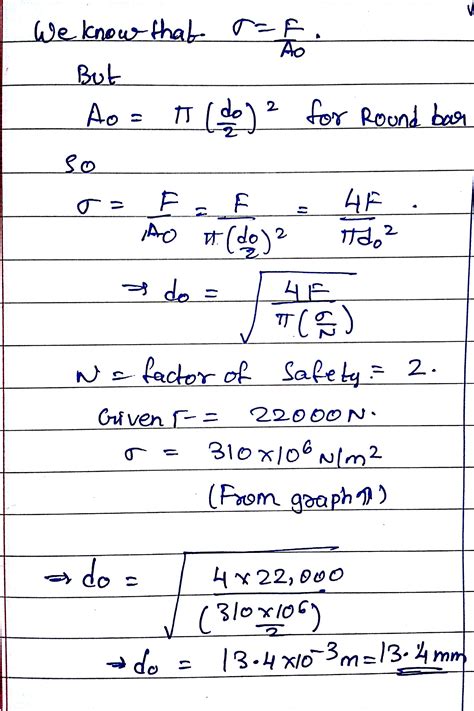 We know that σ = F/A₀.
But
A₀ = π(d₀/2)² for Round bar
so
σ = F/A₀ = F/π(d₀/2)² = 4F/πd₀².
⇒ d₀ = √(4F/π(σ/N))
N = factor of safety = 2.
Given F = 22000N.
σ = 310×10⁶ N/m²
(From graph)
⇒ d₀ = √(4×22,000/(310×10⁶/2))
→ d₀ = 13.4×10⁻³m = 13.4mm